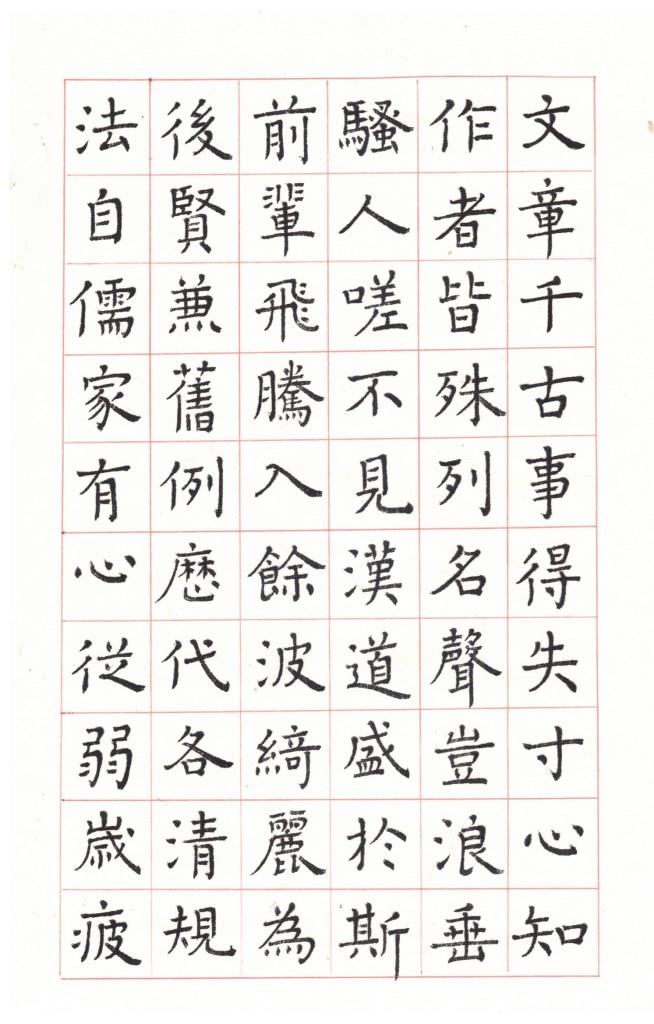 文章千古事得失寸心知
作者皆殊列名聲豈浪垂
騷人嗟不見漢道盛於斯
前輩飛騰入餘波綺麗為
後賢兼舊例歷代各清規
法自儒家有心從弱歲疲